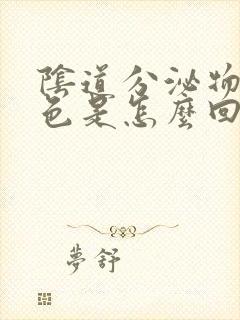 陰道分泌物
色是怎麼回
夢舒